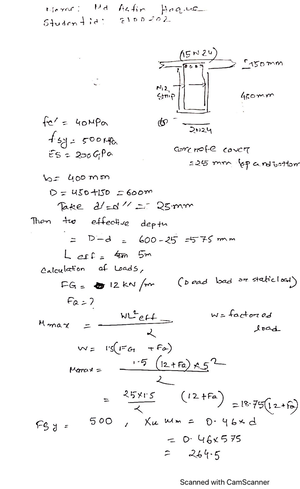 Name: Md Asfin Haque
Student id: 2100202
(15N24)
150mm
N12
strip
450mm
2N24
fc' = 40MPa
fsy = 500MPa
ES = 200GPa
concrete cover
= 25 mm top and bottom
b = 400mm
D = 450+150 = 600m
Take d' = d'' = 25mm
Then the effective depth
= D-d = 600-25 = 575 mm
L eff = 5m
Calculation of Loads,
FG = 12 kN/m (Dead load or static load)
Fa = ?
Mmax = WL²eff / 2
W = factored
load
W = 1.5(FG + Fa)
Mmax = 1.5 (12+Fa) x 5² / 2
= 25x1.5 / 2 (12+Fa) = 18.75(12+Fa)
Fsy = 500, Xu um = 0.46xd
= 0.46x575
= 264.5
Scanned with CamScanner